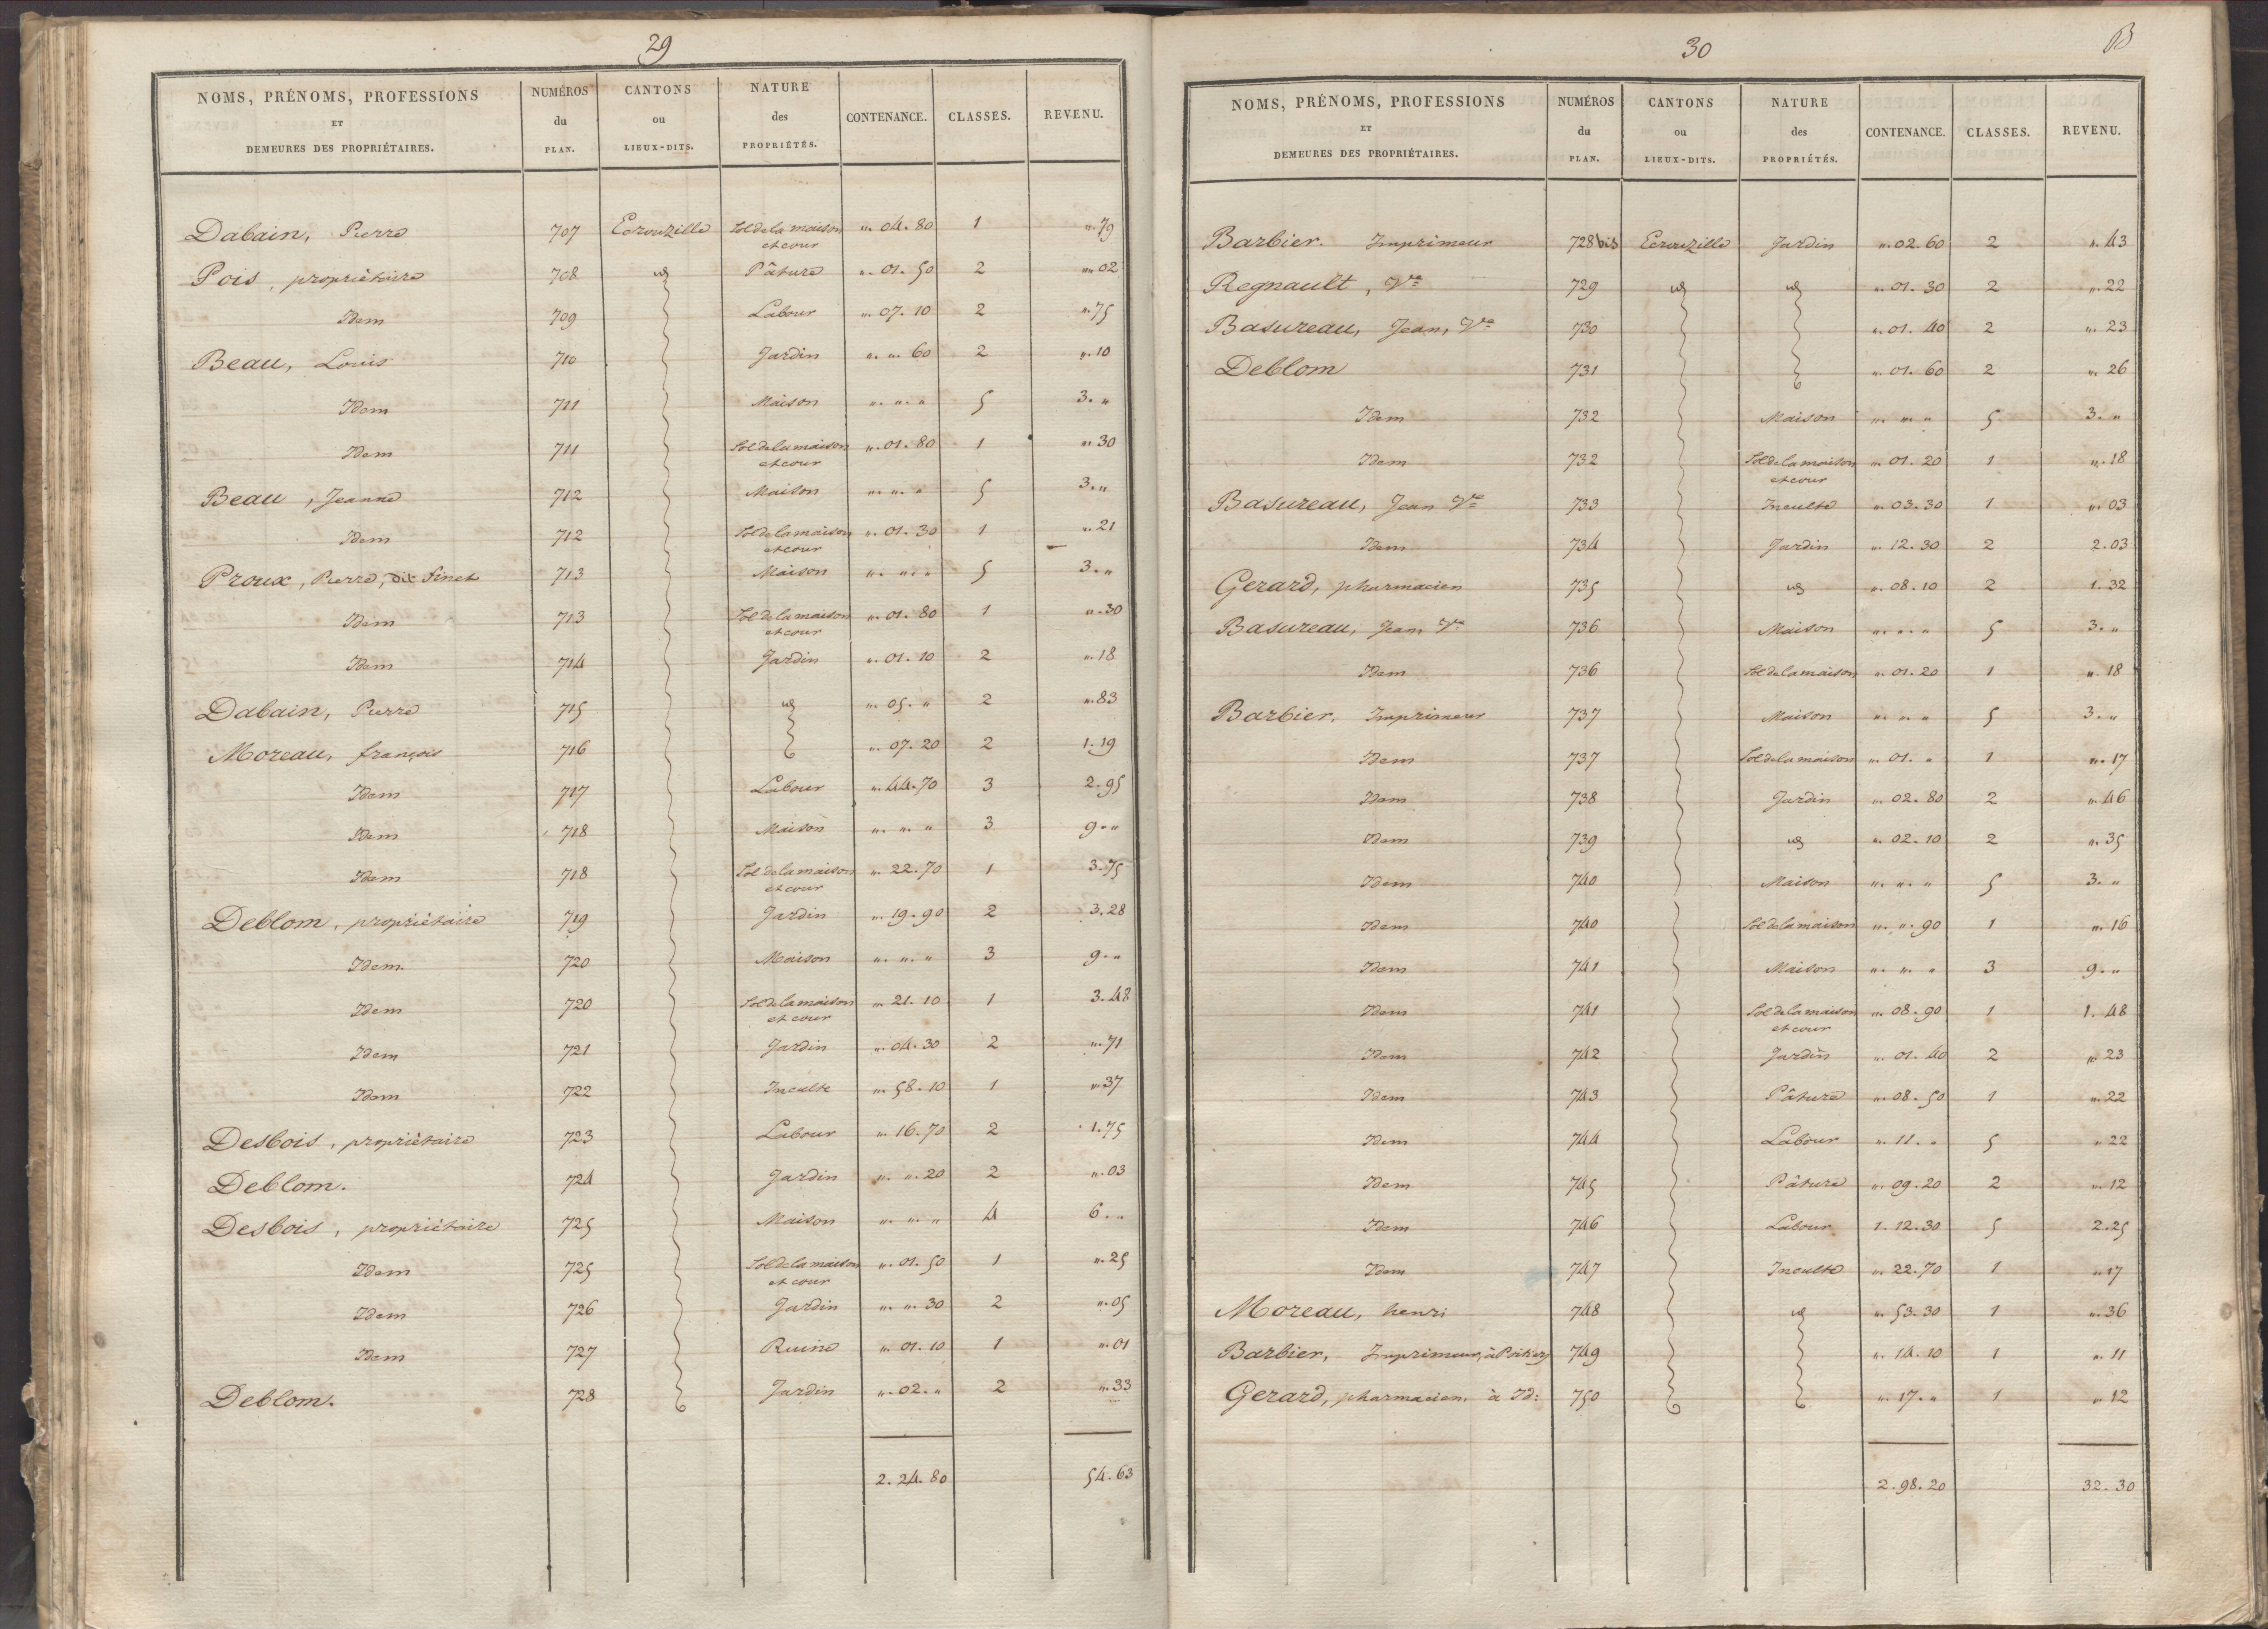 29
NOMS, PRÉNOMS, PROFESSIONS ET DEMEURES DES PROPRIÉTAIRES. NUMÉROS du PLAN. CANTONS ou LIEUX-DITS. NATURE des PROPRIÉTÉS. CONTENANCE. CLASSES. REVENU.
Dabain, Pierre 707 Ecrouzille Sol de la maison et cour ". 04. 80 1 ". 79
Pois, propriétaire 708 id Pâture ". 01. 50 2 ". 02
Idem 709 Labour ". 07. 10 2 ". 75
Beau, Louis 710 Jardin ". ". 60 2 ". 10
Idem 711 Maison ". ". " 5 3. "
Idem 711 Sol de la maison et cour ". 01. 80 1 ". 30
Beau, Jeanne 712 Maison ". ". " 5 3. "
Idem 712 Sol de la maison et cour ". 01. 30 1 ". 21
Proux, Pierre, dit Sinet 713 Maison ". ". " 5 3. "
Idem 713 Sol de la maison et cour ". 01. 80 1 ". 30
Idem 714 Jardin ". 01. 10 2 ". 18
Dabain, Pierre 715 id ". 05. " 2 ". 83
Moreau, françois 716 ". 07. 20 2 1. 19
Idem 717 Labour ". 44. 70 3 2. 95
Idem 718 Maison ". ". " 3 9. "
Idem 718 Sol de la maison et cour ". 22. 70 1 3. 75
Deblom, propriétaire 719 Jardin ". 19. 90 2 3. 28
Idem. 720 Maison ". ". " 3 9. "
Idem 720 Sol de la maison et cour ". 21. 10 1 3. 48
Idem 721 Jardin ". 04. 30 2 ". 71
Idem 722 Inculte ". 58. 10 1 ". 37
Desbois, propriétaire 723 Labour ". 16. 70 2 1. 75
Deblom. 724 Jardin ". ". 20 2 ". 03
Desbois, propriétaire 725 Maison ". ". " 4 6. "
Idem 725 Sol de la maison et cour ". 01. 50 1 ". 25
Idem 726 Jardin ". ". 30 2 ". 05
Idem 727 Ruine ". 01. 10 1 ". 01
Deblom. 728 Jardin ". 02. " 2 ". 33
2. 24. 80 54. 63
30
B
NOMS, PRÉNOMS, PROFESSIONS ET DEMEURES DES PROPRIÉTAIRES. NUMÉROS du PLAN. CANTONS ou LIEUX-DITS. NATURE des PROPRIÉTÉS. CONTENANCE. CLASSES. REVENU.
Barbier. Imprimeur 728 bis Ecrouzille Jardin ". 02. 60 2 ". 43
Regnault, Ve 729 id id ". 01. 30 2 ". 22
Basureau, Jean, Ve 730 ". 01. 40 2 ". 23
Deblom 731 ". 01. 60 2 ". 26
Idem 732 Maison ". ". " 5 3. "
Idem 732 Sol de la maison et cour ". 01. 20 1 ". 18
Basureau, Jean Ve 733 Inculte ". 03. 30 1 ". 03
Idem 734 Jardin ". 12. 30 2 2. 03
Gerard, pharmacien 735 id ". 08. 10 2 1. 32
Basureau, Jean Ve 736 Maison ". ". " 5 3. "
Idem 736 Sol de la maison ". 01. 20 1 ". 18
Barbier, Imprimeur 737 Maison ". ". " 5 3. "
Idem 737 Sol de la maison ". 01. " 1 ". 17
Idem 738 Jardin ". 02. 80 2 ". 46
Idem 739 id ". 02. 10 2 ". 35
Idem 740 Maison ". ". " 5 3. "
Idem 740 Sol de la maison ". ". 90 1 ". 16
Idem 741 Maison ". ". " 3 9. "
Idem 741 Sol de la maison et cour ". 08. 90 1 1. 48
Idem 742 Jardin ". 01. 40 2 ". 23
Idem 743 Pâture ". 08. 50 1 ". 22
Idem 744 Labour ". 11. " 5 ". 22
Idem 745 Pâture ". 09. 20 2 ". 12
Idem 746 Labour 1. 12. 30 5 2. 25
Idem 747 Inculte ". 22. 70 1 ". 17
Moreau, henri 748 id ". 53. 30 1 ". 36
Barbier, Imprimeur, à Poitiers 749 ". 14. 10 1 ". 11
Gerard, pharmacien, à Id: 750 ". 17. " 1 ". 12
2. 98. 20 32. 30